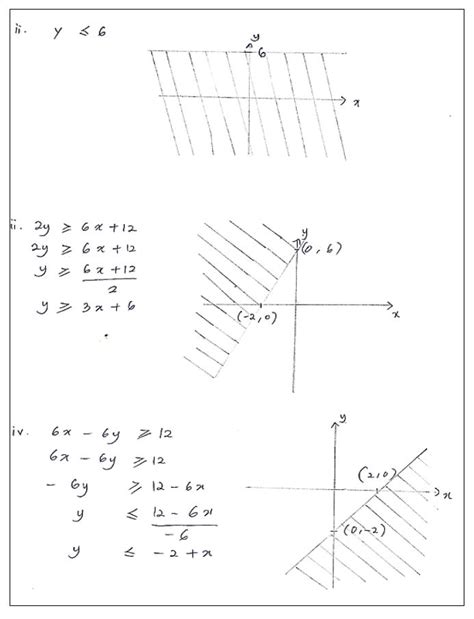 ii. y ≤ 6
y
6
x
ii. 2y ≥ 6x+12
2y ≥ 6x+12
y ≥ 6x+12
2
y ≥ 3x+6
y
(0,6)
(-2,0)
x
iv. 6x - 6y ≥ 12
6x - 6y ≥ 12
- 6y ≥ 12 - 6x
y ≤ 12 - 6x
-6
y ≤ -2 + x
y
(2,0)
x
(0,-2)